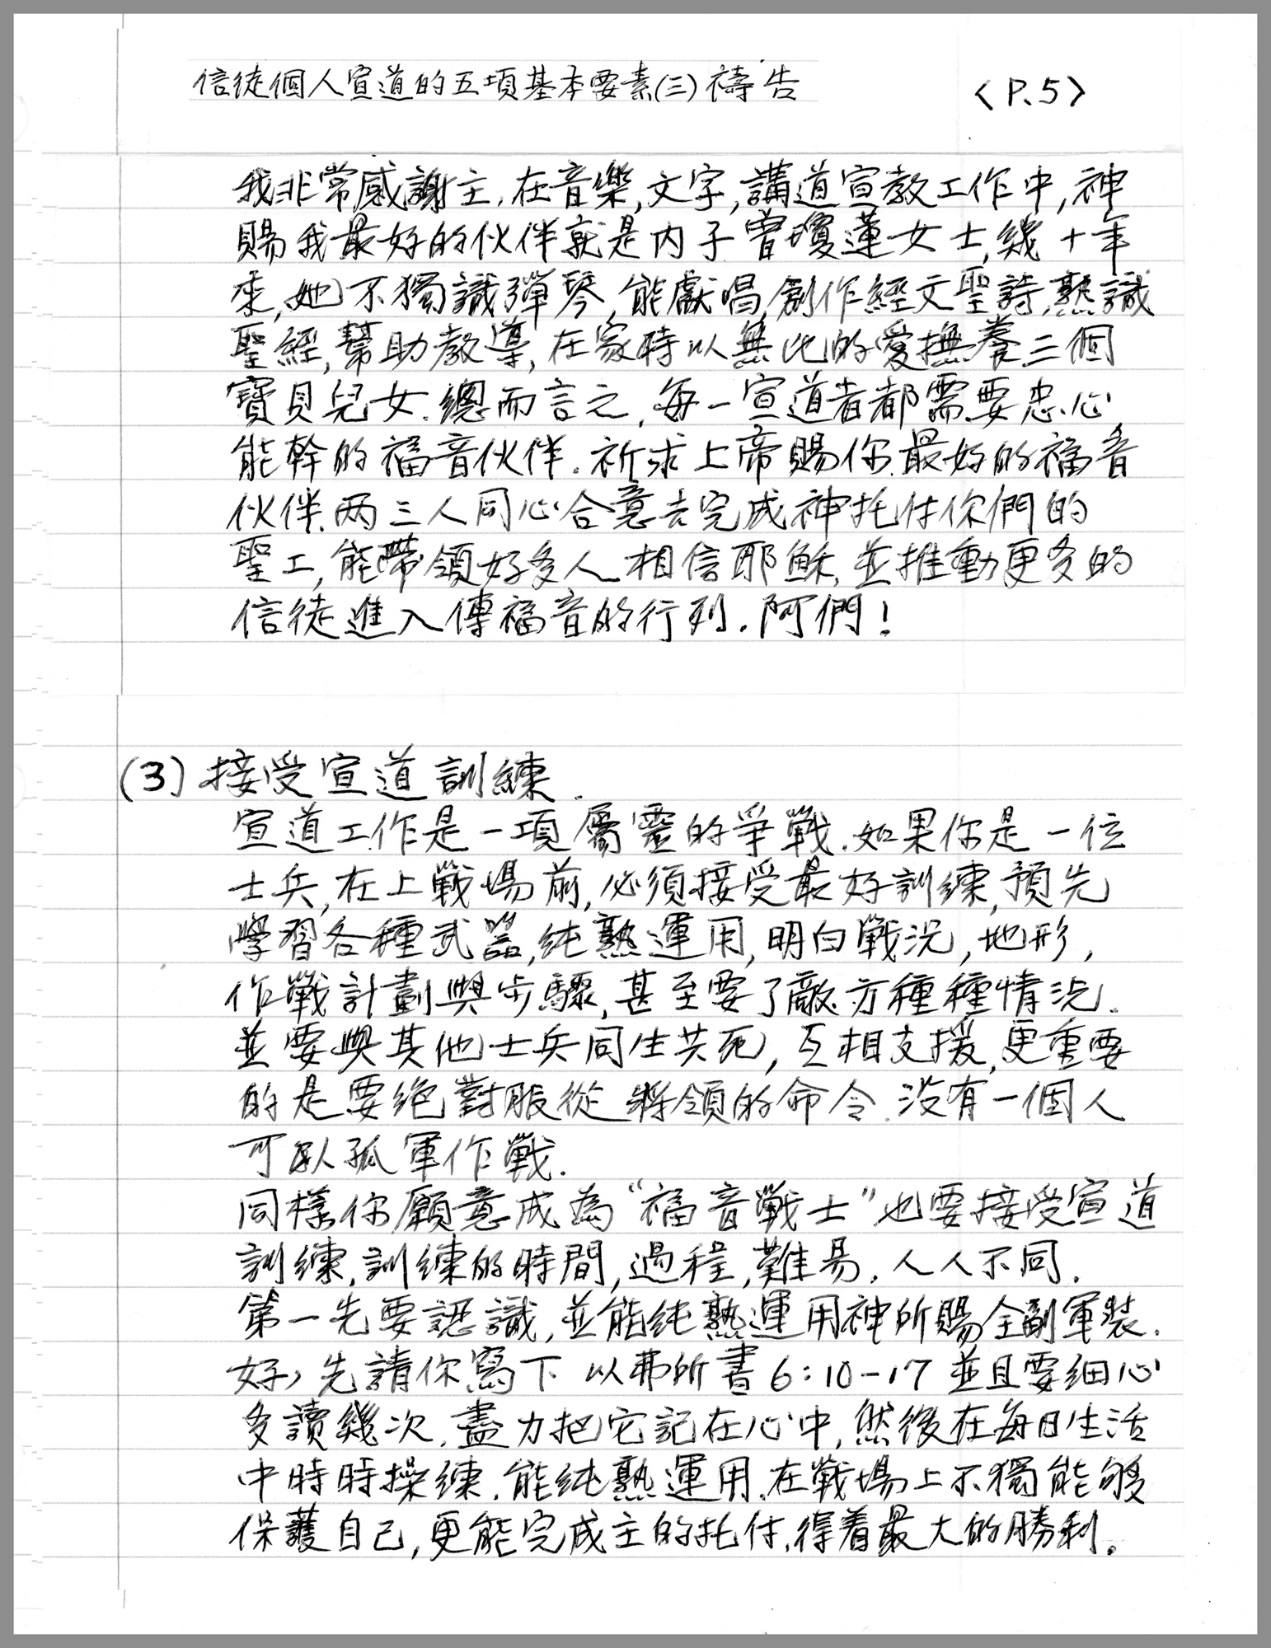 信徒個人宣道的五項基本要素(三)禱告
<P.5>
我非常感謝主,在音樂,文字,講道宣教工作中,神
賜我最好的伙伴就是內子曾瓊蓮女士,幾十年
來,她不獨識彈琴,能獻唱,創作經文聖詩,熟識
聖經,幫助教導,在家時以無比的愛撫養三個
寶貝兒女.總而言之,每一宣道者都需要忠心
能幹的福音伙伴.祈求上帝賜你最好的福音
伙伴,两三人同心合意去完成神托付你們的
聖工,能帶領好多人相信耶穌,並推動更多的
信徒進入傳福音的行列.阿們!
(3)接受宣道訓練.
宣道工作是一項屬靈的爭戰.如果你是一位
士兵,在上戰場前,必須接受最好訓練,預先
學習各種武器,純熟運用,明白戰況,地形,
作戰計劃與步驟,甚至要了敵方種種情況.
並要與其他士兵同生共死,互相支援,更重要
的是要絕對服從將領的命令.沒有一個人
可以孤軍作戰.
同樣你願意成為"福音戰士"也要接受宣道
訓練,訓練的時間,過程,難易,人人不同.
第一先要認識,並能純熟運用神所賜全副軍裝.
好,先請你寫下 以弗所書6:10-17並且要細心
多讀幾次,盡力把它記在心中,然後在每日生活
中時時操練.能純熟運用.在戰場上不獨能够
保護自己,更能完成主的托付,得着最大的勝利。